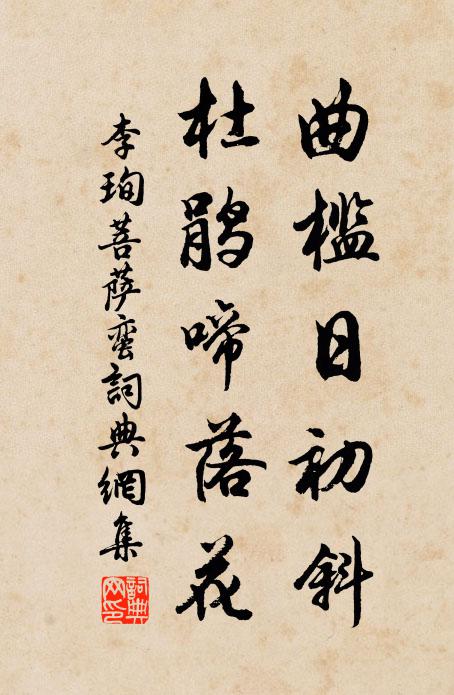 曲檻日初斜
杜鹃啼落花
李珣菩薩蛮詞典網集
詞典网印